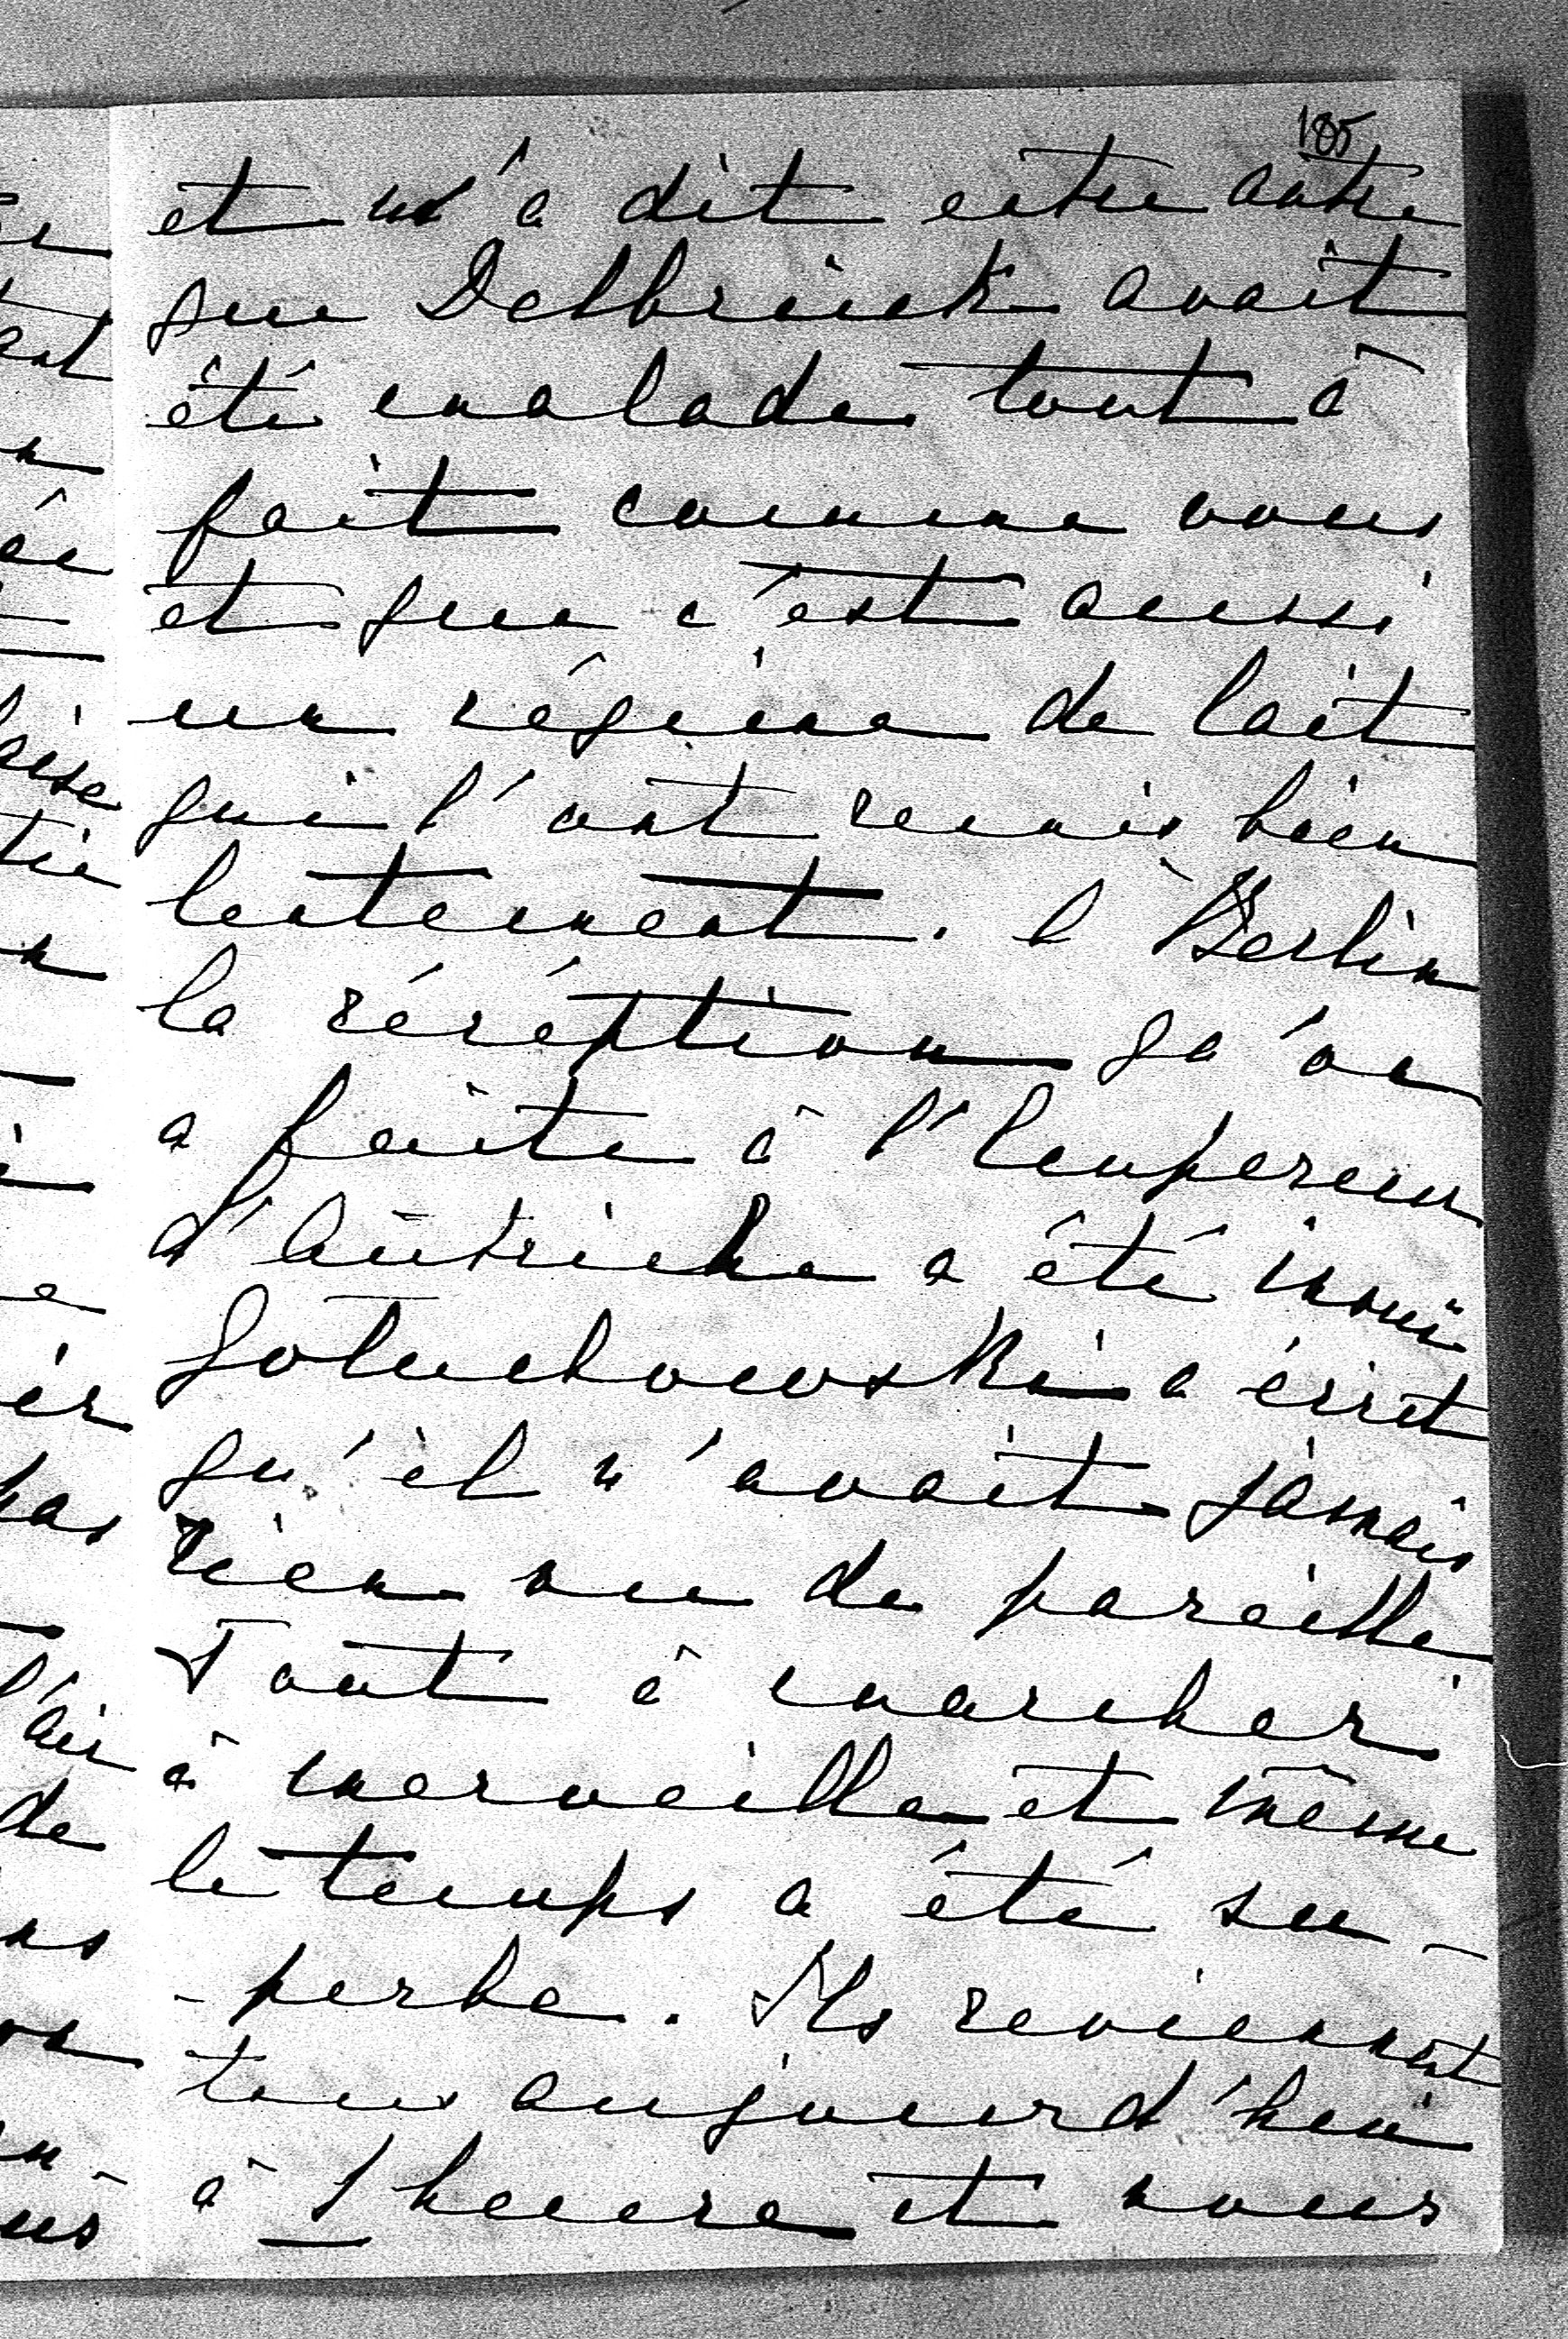 185
et m'a dit entre autre
que Delbrück avait
été malade tout à
fait comme vous
et que c'est aussi
un régime de lait
qui l'ont remis bien
lentement. à Berlin
la réréption qu'on
a faite à l'Empereur
d'Autriche a été inouï
Goluchowski a érrit
qu'il n'avait jamais
rien vu de pareille.
Tout à marcher
à merveille et même
le temps a été su-
-perbe. Ils reviennent
tous aujourd'hui
à 1 heure et nous